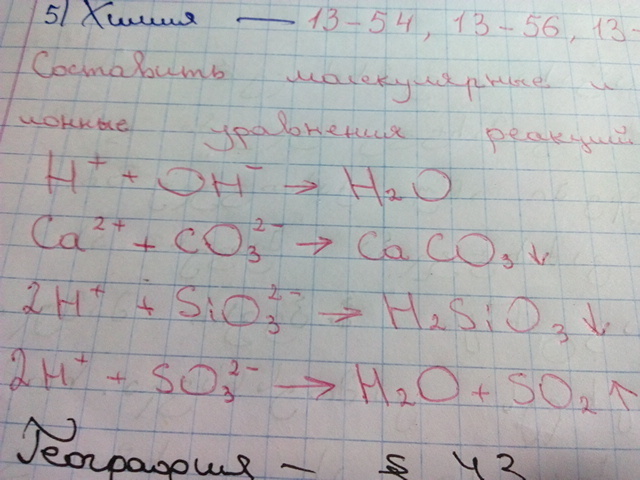 5) Химия — 13-54, 13-56, 13-
Составить молекулярные и
ионные уравнения реакций
H⁺ + OH⁻ → H₂O
Ca²⁺ + CO₃²⁻ → CaCO₃↓
2H⁺ + SiO₃²⁻ → H₂SiO₃↓
2H⁺ + SO₃²⁻ → H₂O + SO₂↑
География — § 42